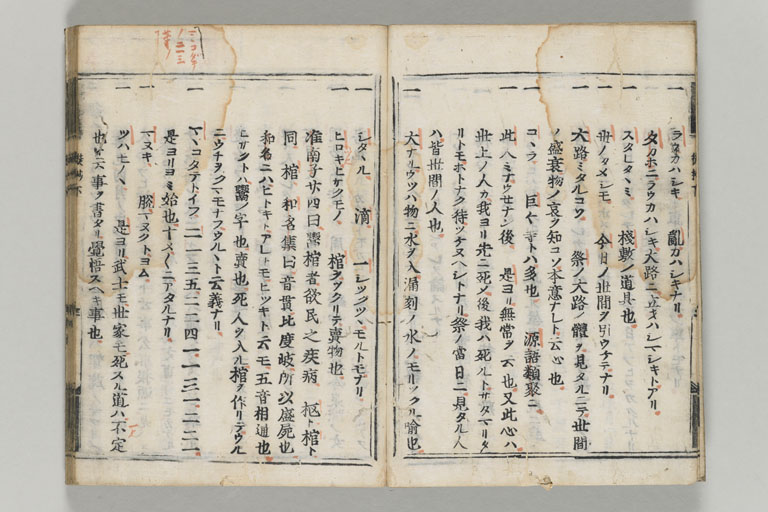 一 ラウカハシキ 亂カハシキナリ
夕カホニラウカハシキ大路ニ立キハシマシキトアリ
一 スタレタヽミ 棧敷ノ道具也
一 世ノタメシモ 今日ノ世間ヲ引ウケテナリ
一 大路ミタルコソ 祭ノ大路ノ體ヲ見タルニテ世間
ノ盛衰物ノ哀ヲ知コソ本意ナレト云心也
一 コヽラ 巨々等トハ多也 源語類聚ニ
一 此人ミナウセナン後 是ヨリ無常ヲ云也又此心ハ
世上ノ人カ我ヨリ先ニ死ノ後我ハ死ルトサタマリタ
リトモホトナク待ツケヌヘシトナリ祭ノ當日ニ見タル人
ハ皆世間ノ人也
一 大ナルウツハ物ニ水ヲ入 漏刻ノ水ノモリツクル喩也
一 シタヽル 滴 一シツクツヽモルトモナリ
一 ヒロキヒサクモノ 棺ヲツクリテ賣物也
准南子廿四曰鬻棺者欲民之疾病 柩ト棺ト
同 棺 和名集曰音貫比度岐所以盛屍也
和名ニハヒトキトアレトモヒツキト云モ五音相通也
ヒサクトハ鬻ノ字也賣也死人ヲ入ル棺ヲ作リテウル
ニウチヲクマモナフウルヽト云義ナリ
一 マヽコタテトイフ 二一三五二二四一一三一二二一
是ヨリヨミ始也十メ〱ニアタルナリ
一 マヌキ 勝 マヌクトヨム
一 ツハモノヽ 是ヨリ武士モ世家モ死スル道ハ不定
也 天事ヲ書タリ覺悟スヘキ事也